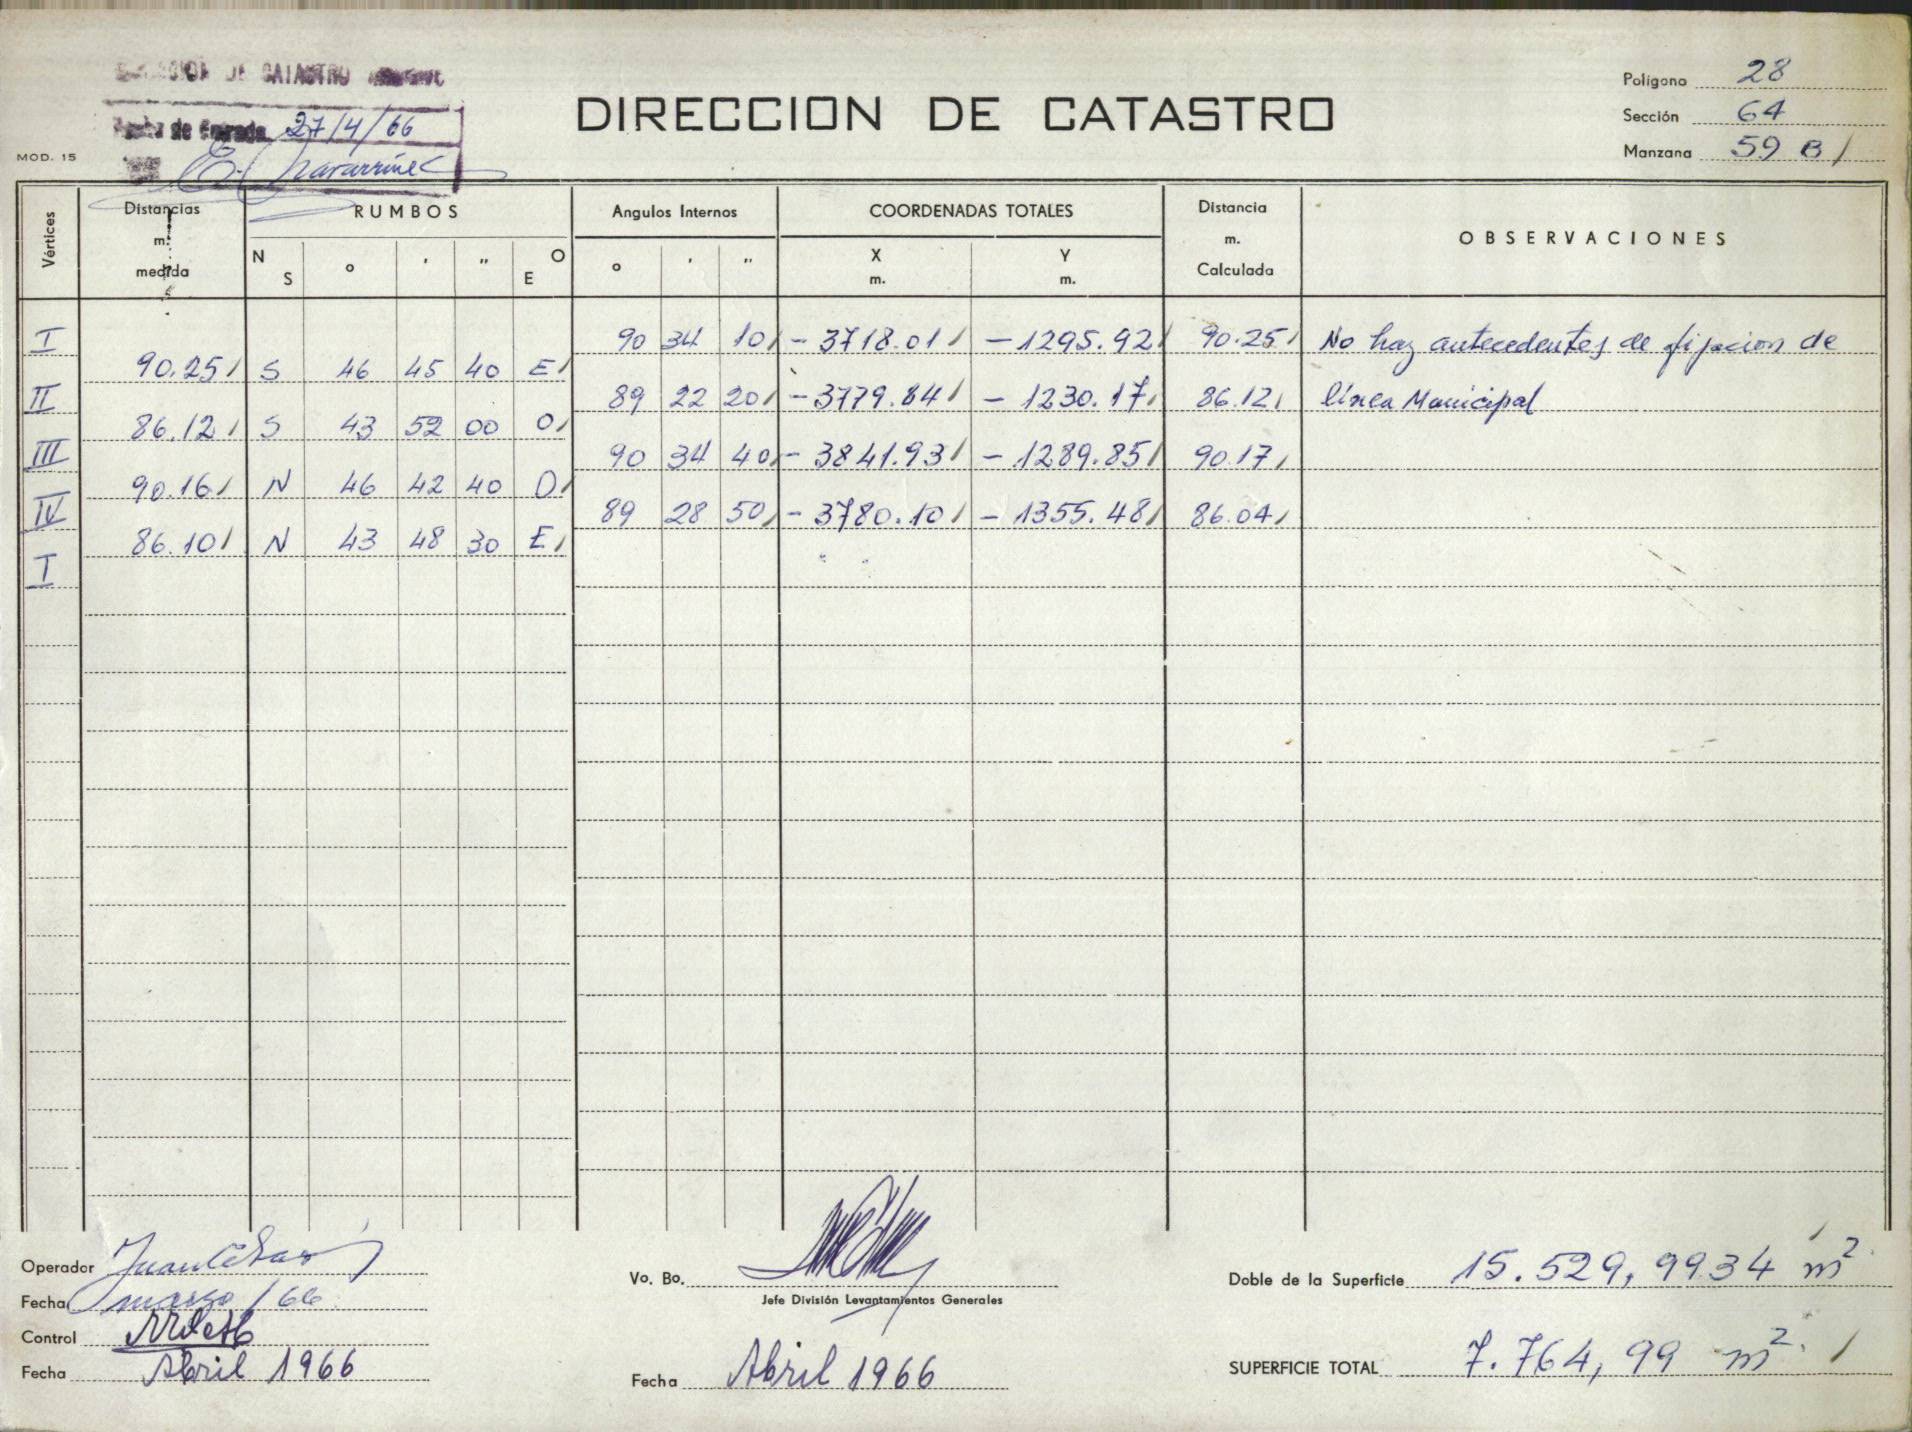 DE CATASTRO
de Entrada 27/4/66
MOD. 15
DIRECCION DE CATASTRO
Polígono 28
Sección 64
Manzana 59 B /
Vértices
Distancias m. medida
RUMBOS
N S ° ' " O E
Angulos Internos
° ' "
COORDENADAS TOTALES
X m.
Y m.
Distancia m. Calculada
OBSERVACIONES
I 90 34 10/ - 3718.01/ - 1295.92/ 90.25/ No hay antecedentes de fijacion de
90.25/ S 46 45 40 E/
II 89 22 20/ - 3779.84/ - 1230.17/ 86.12/ línea Municipal
86.12/ S 43 52 00 O/
III 90 34 40/ - 3841.93/ - 1289.85/ 90.17/
90.16/ N 46 42 40 O/
IV 89 28 50/ - 3780.10/ - 1355.48/ 86.04/
86.10/ N 43 48 30 E/
I
Operador
Fecha marzo/66
Control
Fecha Abril 1966
Vo. Bo.
Jefe División Levantamientos Generales
Fecha Abril 1966
Doble de la Superficie 15.529,9934 m²
SUPERFICIE TOTAL 7.764,99 m². /